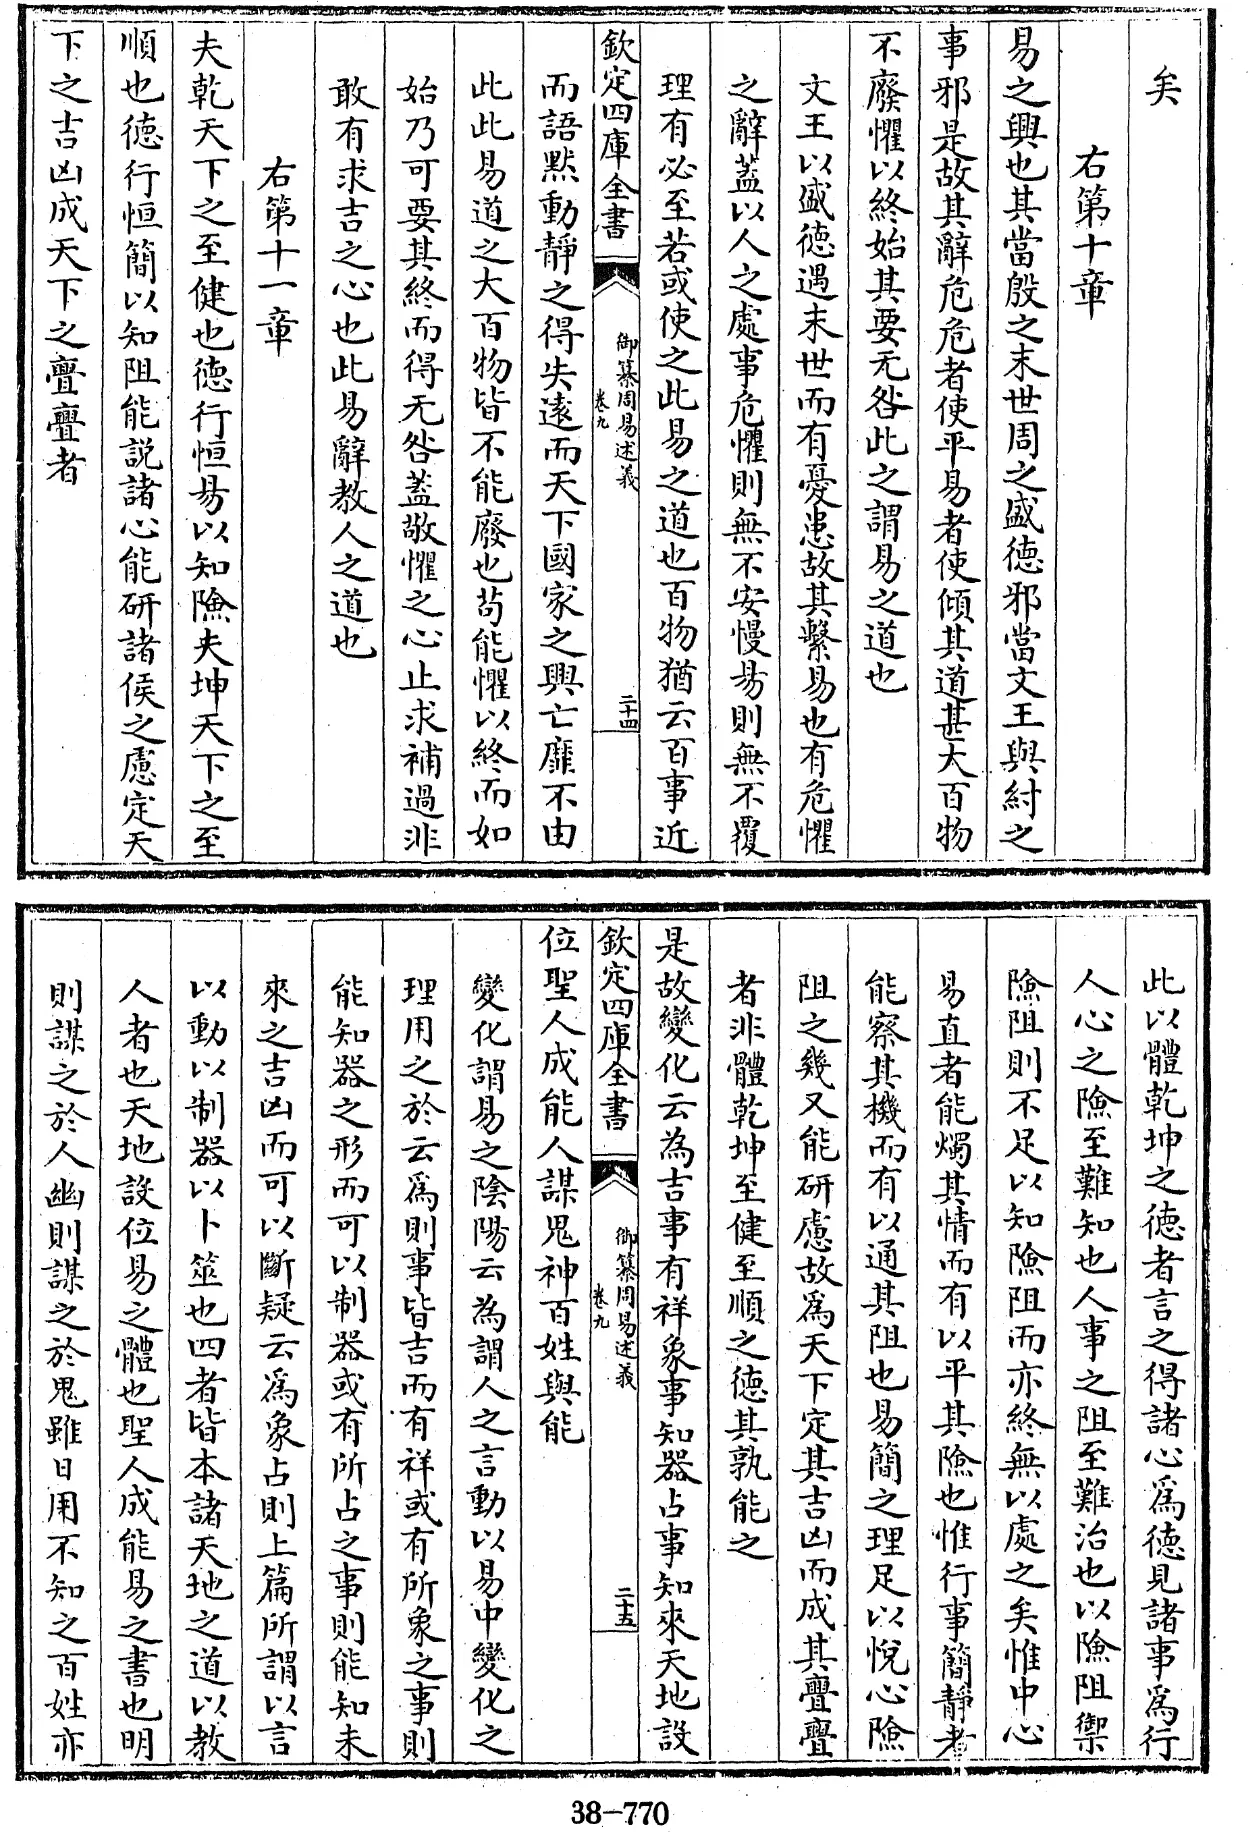 矣
右第十章
易之興也其當殷之末世周之盛德邪當文王與紂之
事邪是故其辭危危者使平易者使傾其道甚大百物
不廢懼以終始其要无咎此之謂易之道也
文王以盛德遇末世而有憂患故其繫易也有危懼
之辭蓋以人之處事危懼則無不安慢易則無不覆
理有必至若或使之此易之道也百物猶云百事近
欽定四庫全書
御纂周易述義
卷九
二十四
而語黙動靜之得失遠而天下國家之興亡靡不由
此此易道之大百物皆不能廢也苟能懼以終而如
始乃可要其終而得无咎蓋敬懼之心止求補過非
敢有求吉之心也此易辭教人之道也
右第十一章
夫乾天下之至健也德行恒易以知險夫坤天下之至
順也德行恒簡以知阻能說諸心能研諸侯之慮定天
下之吉凶成天下之亹亹者
此以體乾坤之德者言之得諸心爲德見諸事爲行
人心之險至難知也人事之阻至難治也以險阻禦
險阻則不足以知險阻而亦終無以處之矣惟中心
易直者能燭其情而有以平其險也惟行事簡靜者
能察其機而有以通其阻也易簡之理足以悅心險
阻之幾又能研慮故爲天下定其吉凶而成其亹亹
者非體乾坤至健至順之德其孰能之
是故變化云為吉事有祥象事知器占事知來天地設
欽定四庫全書
御纂周易述義
卷九
二十五
位聖人成能人謀鬼神百姓與能
變化謂易之陰陽云為謂人之言動以易中變化之
理用之於云爲則事皆吉而有祥或有所象之事則
能知器之形而可以制器或有所占之事則能知未
來之吉凶而可以斷疑云爲象占則上篇所謂以言
以動以制器以卜筮也四者皆本諸天地之道以教
人者也天地設位易之體也聖人成能易之書也明
則謀之於人幽則謀之於鬼雖日用不知之百姓亦
38-770